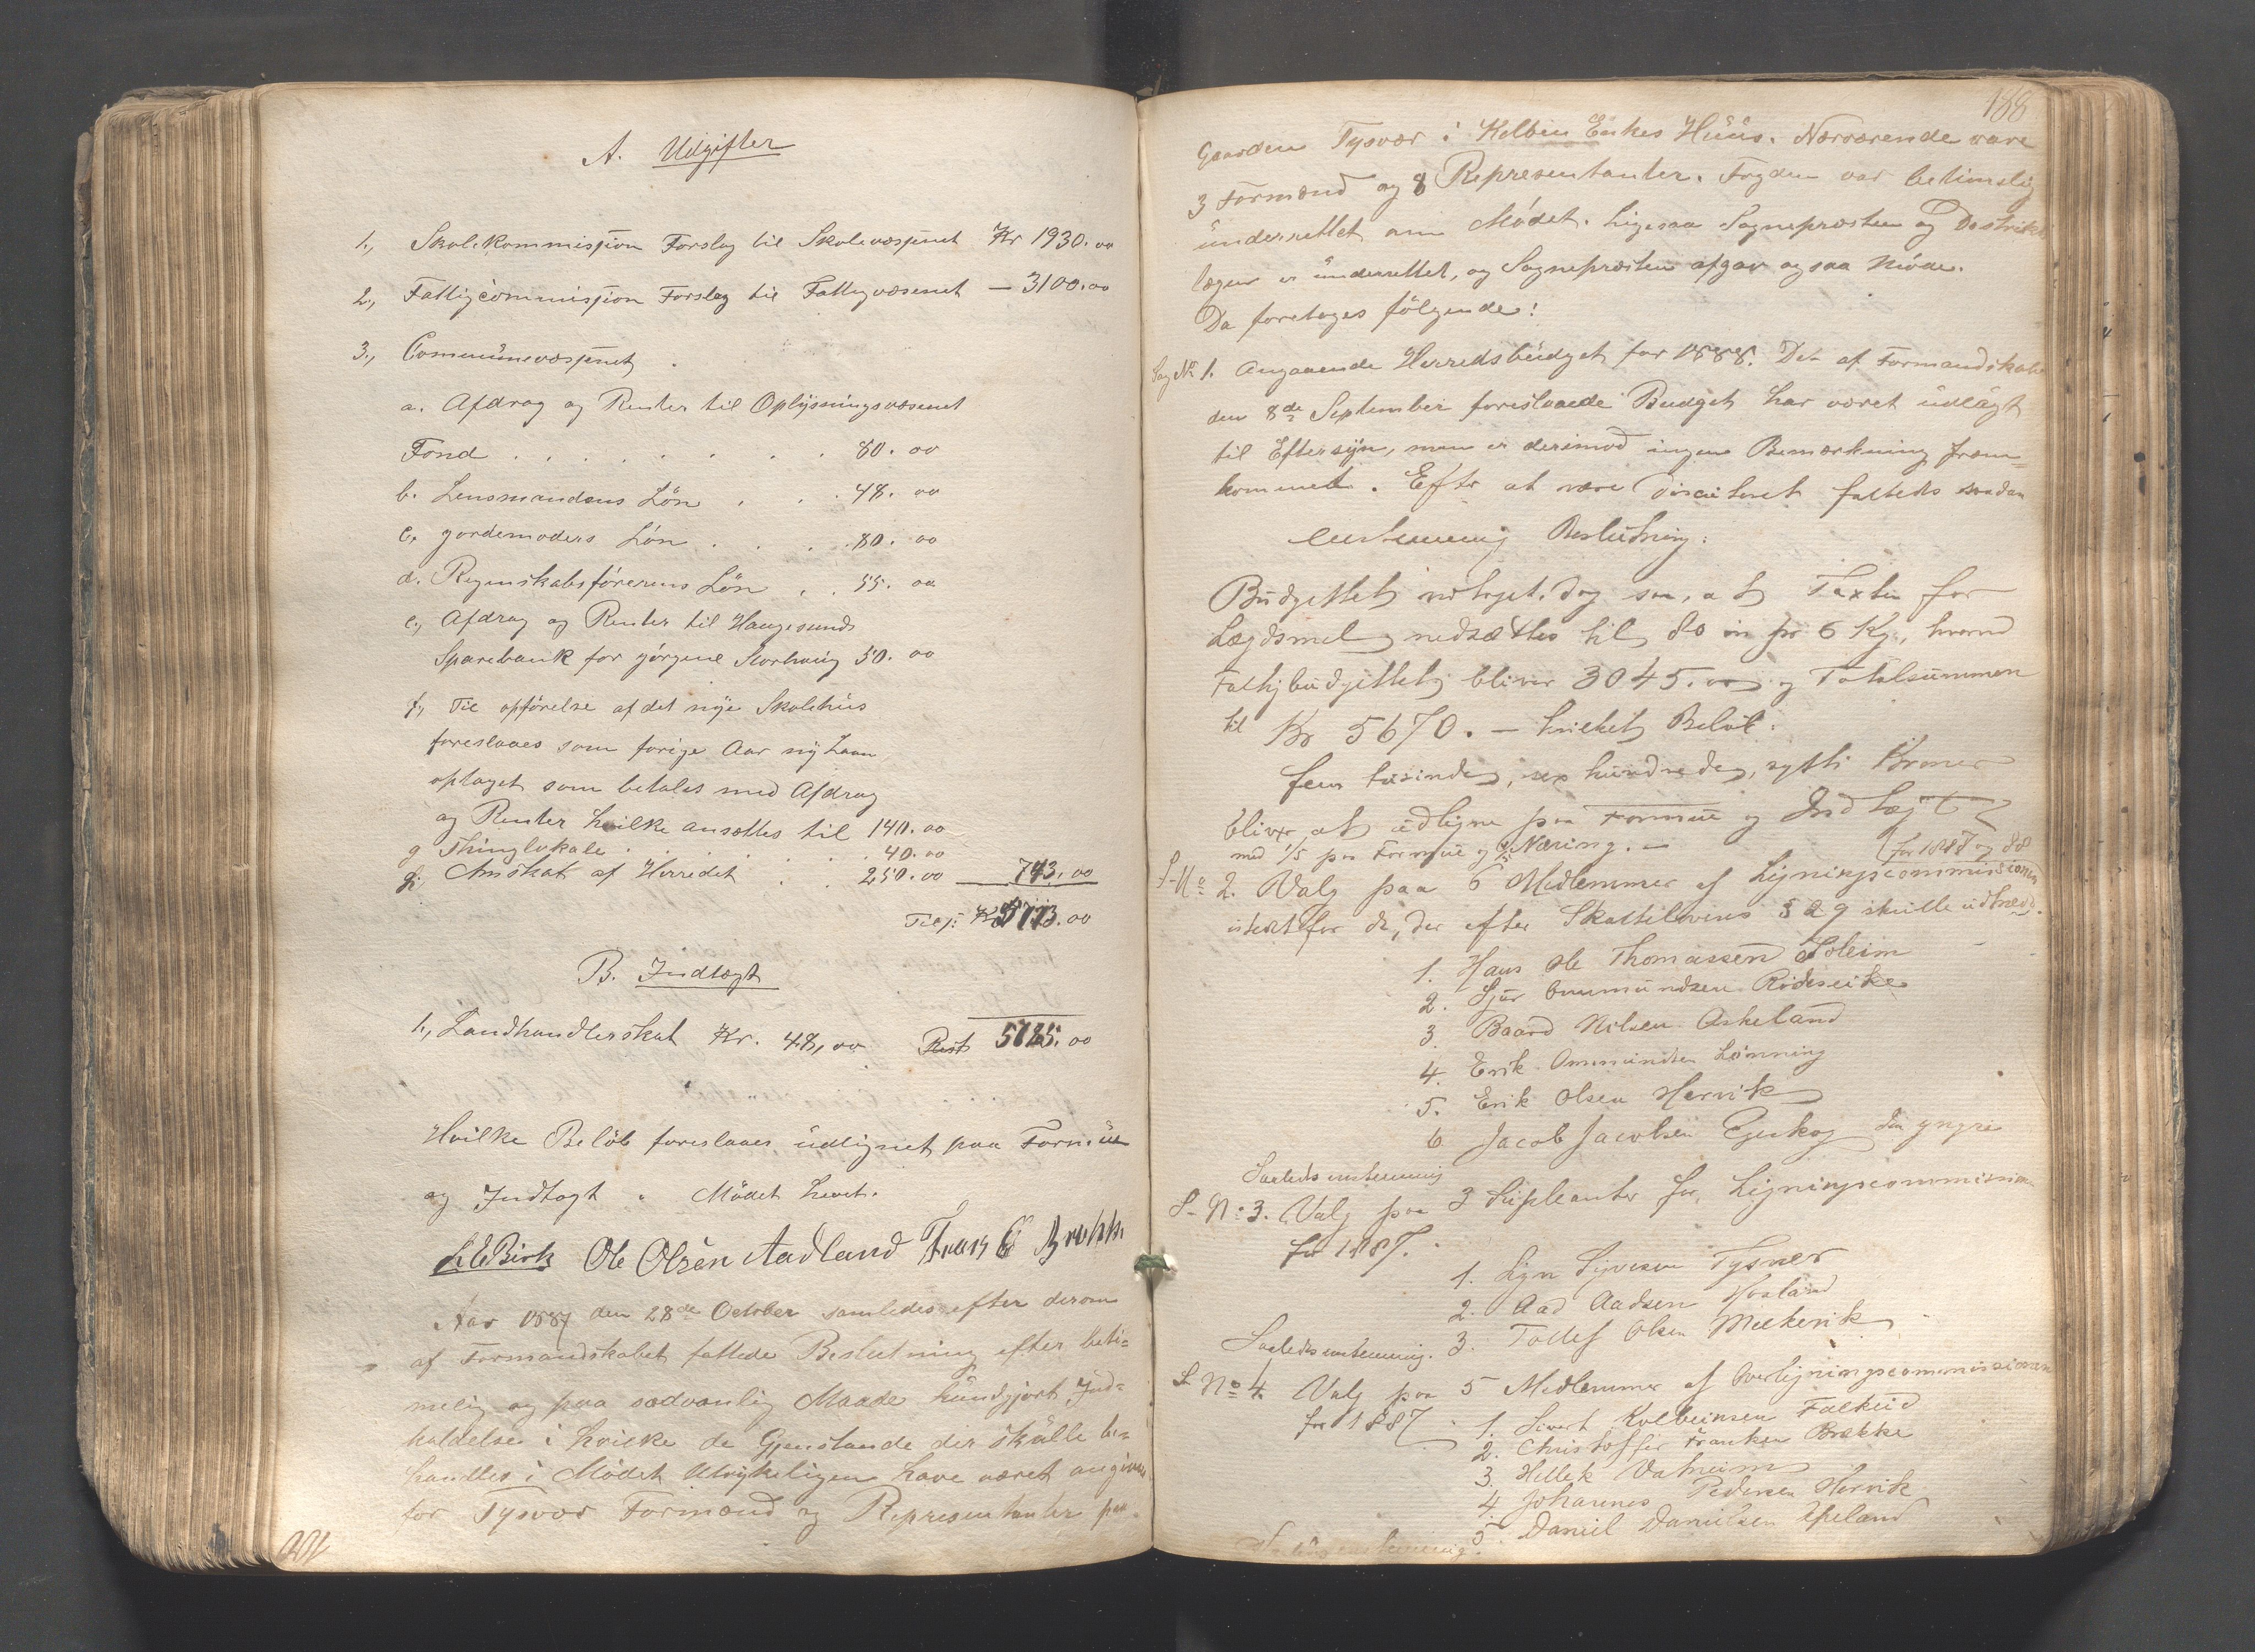 A. Udgifter
1., Skolekommission Forslag til Skolevæsenet Kr 1930.00
2., Fattigcommission Forslag til Fattigvæsenet — 3100.00
3., Communevæsenet.
a. Afdrag og Renter til Oplysningsvæsenet
Fond . . . . . . . . 80.00
b. Lensmandens Lön . . . 48.00
c. gordemoders Lön . . . . 80.00
d. Regnskabsförerens Lön . . 55.00
e., Afdrag og Renter til Haugesunds
Sparebank for görgine Storhaug 50.00
f., Til opförelse af det nÿe Skolehüs
foreslaaes som forige Aar nÿ Laan
optaget som betales med Afdrag
og Renter hvilke ansættes til 140.00
g Thinglokale . . . . . . . 40.00
h., Amskat af Herredet . . 250.00 743.00
Tils: Kr 5773.00
B. Indtægt
1., Landhandlerskat Kr. 48,00 Rest 5725.00
Hvilke Belöb foreslaaes üdlignet paa Formüe
og Indtægt. Mödet hævet.
L E Birk Ole Olsen Aadland Frans C Brekke
Aar 1887 den 28de October samledes efter derom
af Formandskabet fattede Beslutning efter beti=
melig og paa sædvanlig Maade kündgjort Ind=
kaldelse i hvilke de Gjenstande der skülle be=
handles i Mödet Utrÿkeligen have været angivne
for Tysvær Formænd og Representanter paa
188
Gaarden Tysvær i Kolbein Enkes Hüüs. Nærværende vare
3 Formænd og 8 Representanter. Fogden var betimelig
ünderrettet om Mödet. Ligesaa Sognepræsten og Destrikts
lægen er ünderrettet, og Sognepræsten afgav ogsaa Möde.
Da foretages fölgende:
Sag No 1. Angaaende Herredsbüdget for 1888. Det af Formandskabet
den 8de September foreslaaede Budget har været üdlagt
til Eftersÿn, men er derimod ingen Bemærkning frem=
kommet. Efter at være discüteret fattedes saadan
enstemmig Beslütning:
Büdgettet vetaget. dog saa, at Taxten for
Lægdsmel nedsættes til 80 öre pr 6 Kg., hvorved
Fattigbüdgettet bliver 3045.00 og Totalsummen
til Kr 5670. — hvilket Belöb.
fem tüsinde, sex hündrede, sytti Kroner
bliver at üdligne paa Formüe og Indtægt
med 1/5 paa Formüe og 4/5 Næring. —
(for 1887 og 88
S-No 2. Valg paa 6 Medlemmer af Ligningscommissionen
istedet for de, der efter Skattelovens § 29 skulle üdtræde.
1. Hans Ole Thomassen Soleim
2. Sjur Ommündsen Rödsvike
3. Baard Nilsen Askeland
4. Erik Ommündsen Lönning
5. Erik Olsen Hervik
6 Jacob Jacobsen Egeskog den yngre
Saaledes enstemmig
S-No 3. Valg paa 3 Süpleanter for Ligningscommissionen
for 1887.
1. Lÿn Syvesen Tysver
2. Aad Aadsen Hæland
3. Tollef Olsen
Saaledes enstemmig.
S-No 4. Valg paa 5 Medlemmer af Overligningscommissionen
for 1887.
1. Sivert Kolbeinsen Falkeid
2. Christoffer Fransen Brekke
3. Hellek Vatneim
4. Johannes Pedersen Hervik
5. Daniel Danielsen Apeland
Saaledes enstemmig.